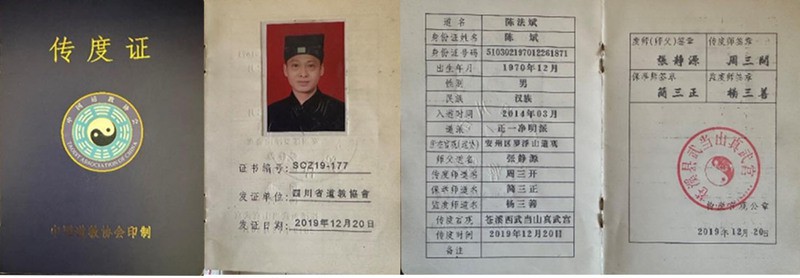 传度证
中国道教协会
TAOIST ASSOCIATION OF CHINA
中国道教协会印制
证书编号: SCZ19-177
发证单位: 四川省道教协會
发证日期: 2019年12月20日
道名 陈法斌
身份证姓名 陈 斌
身份证号码 510302197012261871
出生年月 1970年12月
性别 男
民族 汉族
入道时间 2014年03月
道派 正一净明派
安州区罗浮山道观
师父道名 张静源
传度师道名 周三开
保举师道名 简三正
监度师道名 杨三善
传度宫观 苍溪西武当山真武宫
传度时间 2019年12月20日
备注
度师(师父)签章 传度师签章
张静源 周三開
保举师签章 监度师签章
简三正 杨三善
苍溪县武当山真武宫
2019年12月20日